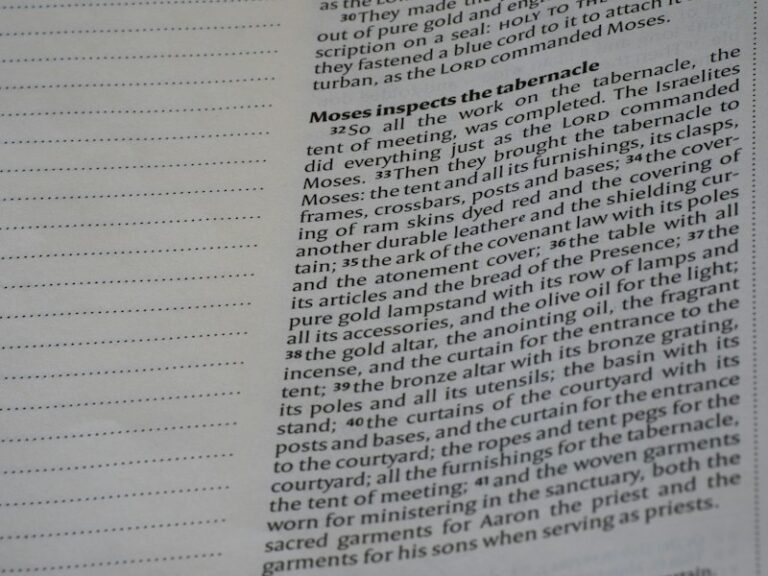 as the LORD
30They made the
out of pure gold and eng
scription on a seal: HOLY TO THE
they fastened a blue cord to it to attach it
turban, as the LORD commanded Moses.
Moses inspects the tabernacle
32So all the work on the tabernacle, the
tent of meeting, was completed. The Israelites
did everything just as the LORD commanded
Moses. 33Then they brought the tabernacle to
Moses: the tent and all its furnishings, its clasps,
frames, crossbars, posts and bases; 34the cover-
ing of ram skins dyed red and the covering of
another durable leathere and the shielding cur-
tain; 35the ark of the covenant law with its poles
and the atonement cover; 36the table with all
its articles and the bread of the Presence; 37the
pure gold lampstand with its row of lamps and
all its accessories, and the olive oil for the light;
38the gold altar, the anointing oil, the fragrant
incense, and the curtain for the entrance to the
tent; 39the bronze altar with its bronze grating,
its poles and all its utensils; the basin with its
stand; 40the curtains of the courtyard with its
posts and bases, and the curtain for the entrance
to the courtyard; the ropes and tent pegs for the
courtyard; all the furnishings for the tabernacle,
the tent of meeting; 41and the woven garments
worn for ministering in the sanctuary, both the
sacred garments for Aaron the priest and the
garments for his sons when serving as priests.